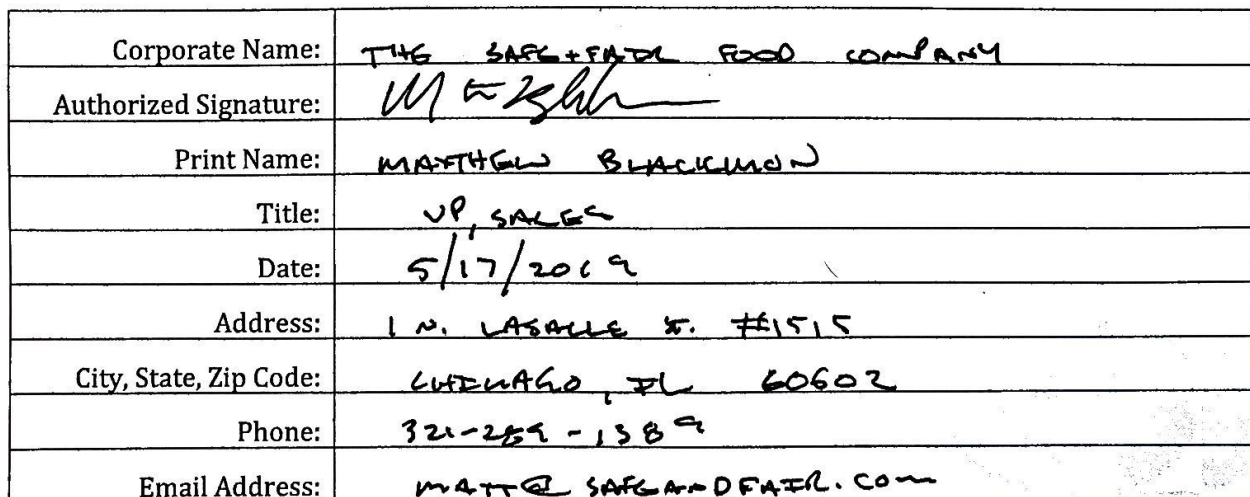 Corporate Name: THE SAFE+FAIR FOOD COMPANY
Authorized Signature:
Print Name: MATTHEW BLACKMON
Title: VP, SALES
Date: 5/17/2019
Address: 1 N. LASALLE ST. #1515
City, State, Zip Code: CHICAGO, IL 60602
Phone: 321-259-1389
Email Address: MATT@SAFEANDFAIR.COM